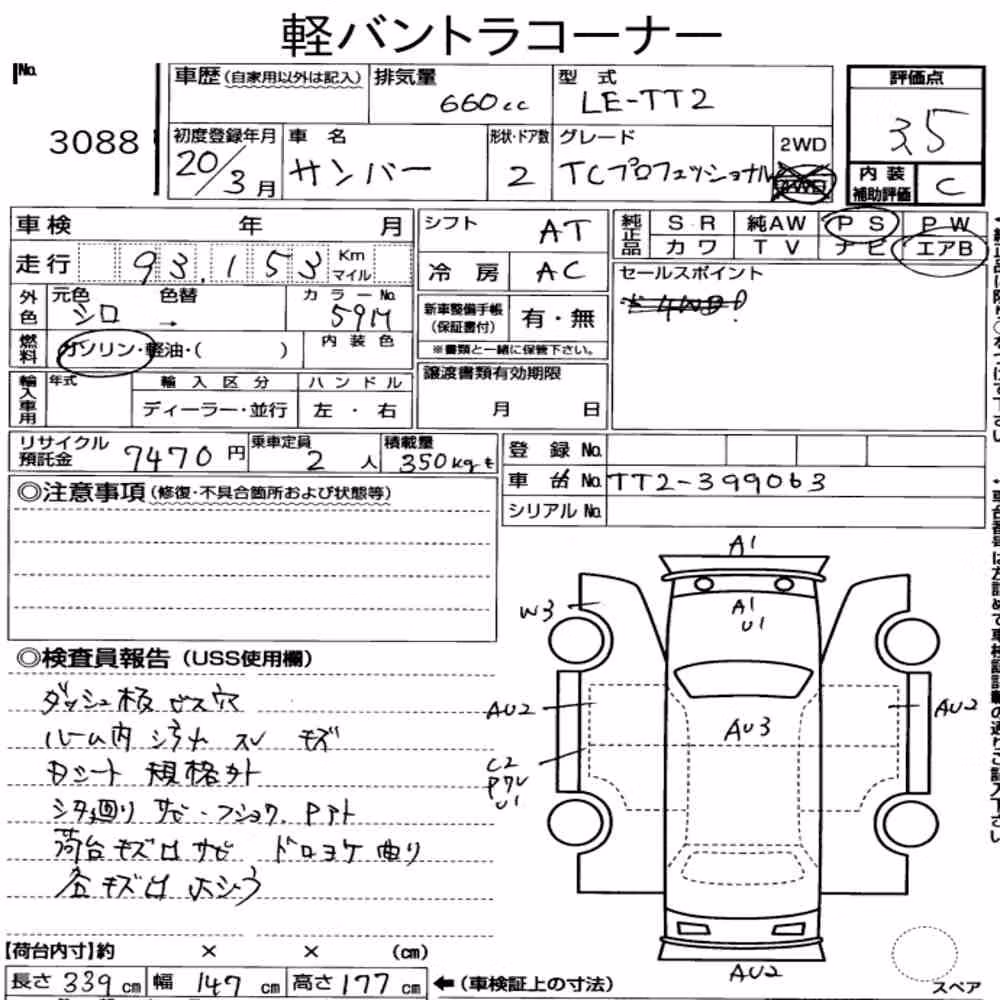 軽バントラコーナー
No.
3088
車歴 (自家用以外は記入)
排気量
660cc
型 式
LE-TT2
評価点
3.5
初度登録年月
20/3月
車 名
サンバー
形状・ドア数
2
グレード
TCプロフェッショナル
2WD
4WD
内装補助評価
C
車検 年 月
走行 93,153 Km マイル
シフト AT
冷房 AC
純正品
SR 純AW PS PW
カワ TV ナビ エアB
セールスポイント
4WD
外色
元色 シロ
色替 →
カラーNo. 59M
新車整備手帳(保証書付) 有・無
※書類と一緒に保管下さい。
燃料 ガソリン・軽油・( )
内装色
輸入車用
年式
輸入区分
ディーラー・並行
ハンドル
左・右
譲渡書類有効期限
月 日
リサイクル預託金 7470円
乗車定員 2人
積載量 350kg t
登録No.
車台No. TT2-399063
シリアルNo.
◎注意事項(修復・不具合箇所および状態等)
◎検査員報告(USS使用欄)
ダッシュ板ビス穴
ルーム内 シライタ スレ キズ
Dシート 規格外
シタ廻り サビ・フショク Pアト
荷台キズ凹サビ ドロヨケ曲り
各キズ凹
A1
A1
U1
W3
AU2
AU3
AU2
C2
Pワレ
U1
AU2
スペア
【荷台内寸】約 × × (cm)
長さ 339cm 幅 147cm 高さ 177cm ←(車検証上の寸法)